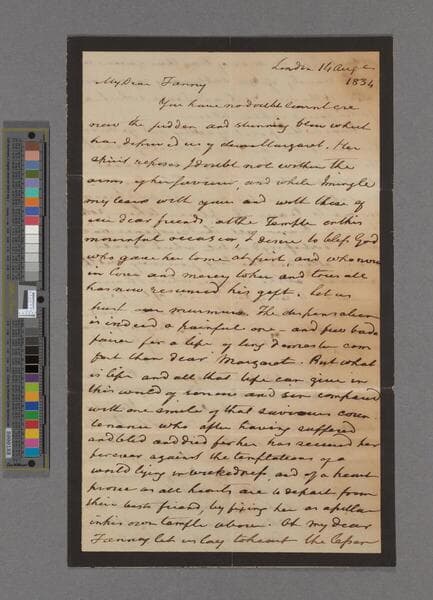 London 14 Aug
1834
My Dear Fanny
You have no doubt learnt ere
now the sudden and stunning blow which
has deprived us of dear Margaret. Her
spirit reposes I doubt not within the
arms of her saviour, and while I mingle
my tears with yours and with those of
our dear friends at the Temple on this
mournful occasion, I desire to bless God
who gave her to me at first, and who now
in love and mercy to her and to us all
has now resumed his gift. Let us
not murmur. The dispensation
is indeed a painful one - and few bade
fairer for a life of long domestic com
fort than dear Margaret. But what
is life and all that life can give in
this world of sorrow and sin compared
with one smile of that saviours coun
tenance who after having suffered
and bled and died for her has secured her
for ever against the temptations of a
world lying in wickedness, and of a heart
prone as all hearts are to depart from
their best friend, by fixing her as a pillar
in his own temple above. Oh my dear
Fanny let us lay to heart the lesson